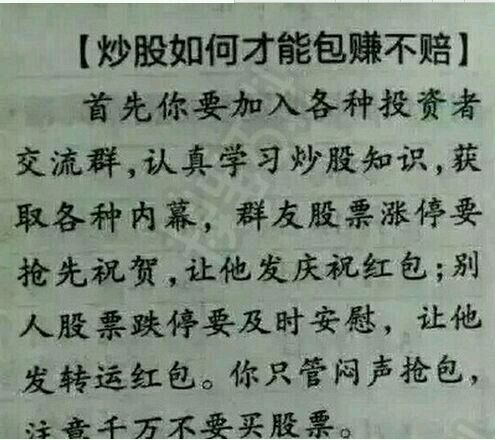 【炒股如何才能包赚不赔】
首先你要加入各种投资者
交流群,认真学习炒股知识,获
取各种内幕，群友股票涨停要
抢先祝贺,让他发庆祝红包;别
人股票跌停要及时安慰，让他
发转运红包。你只管闷声抢包,
注意千万不要买股票。